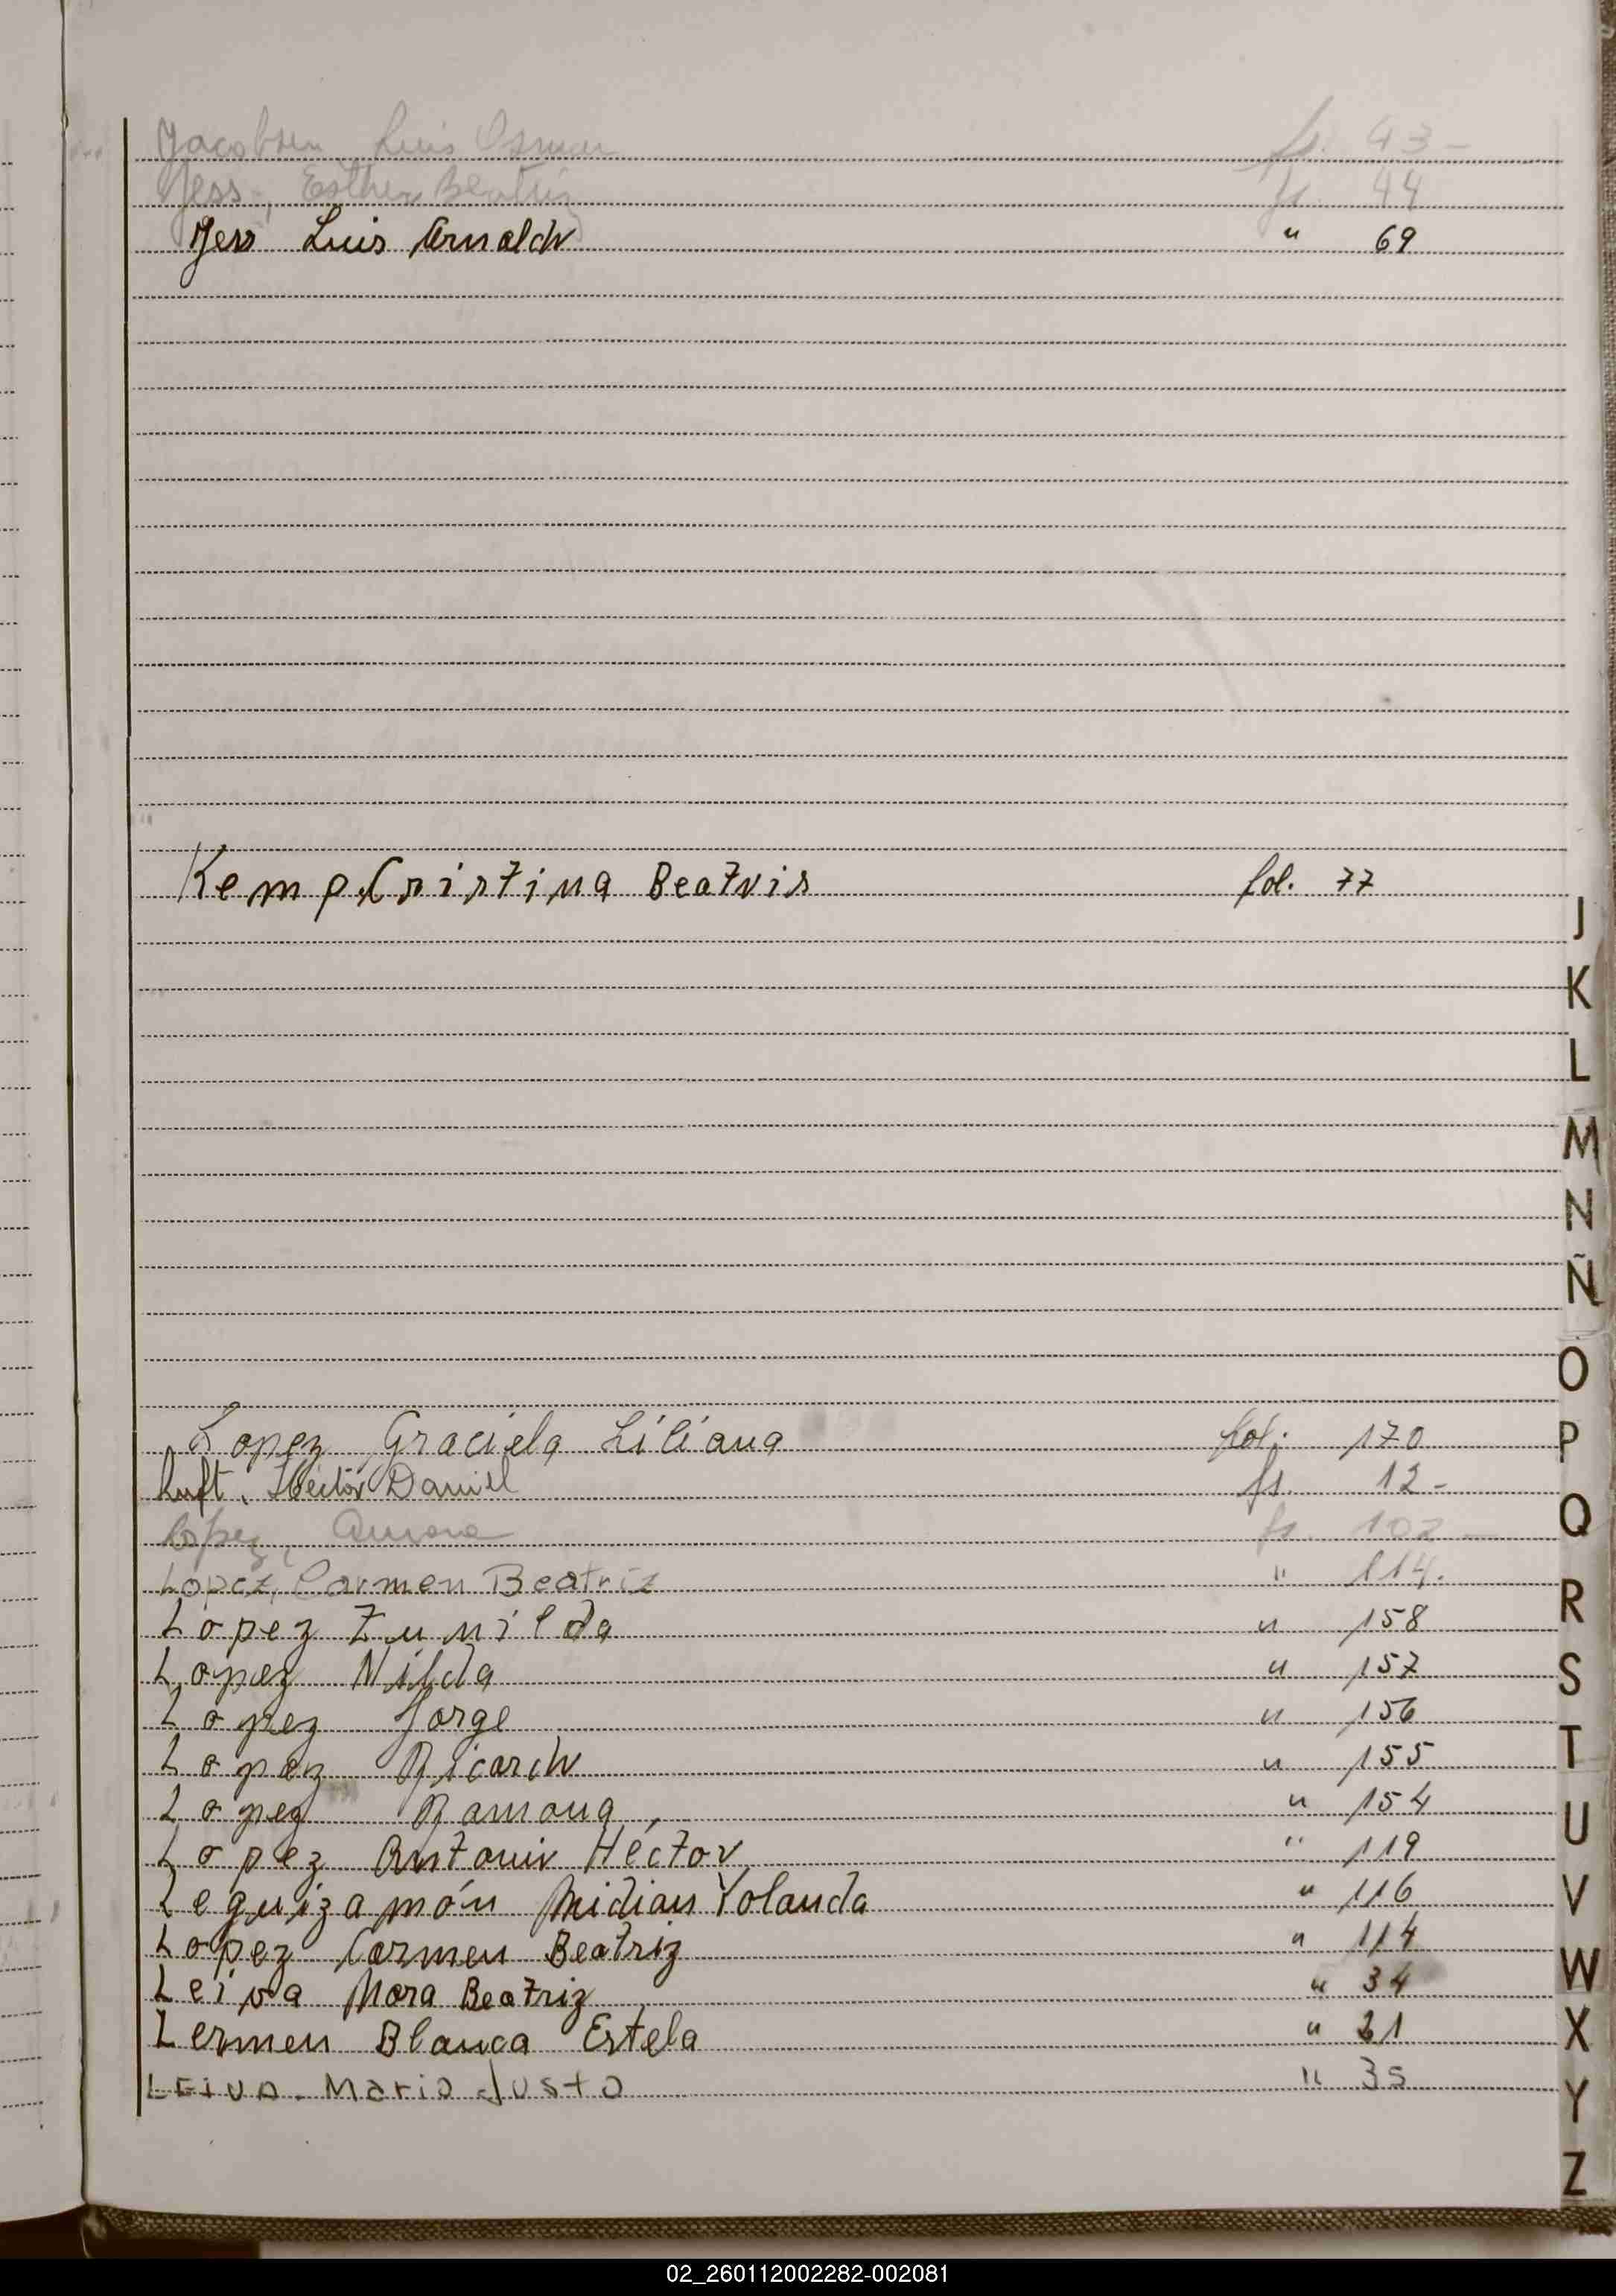 Jacobsen Luis Osmar fs. 43-
Jess, Esther Beatriz fs. 44
Jess Luis Arnaldo " 69
Kemp Cristina Beatris fol. 77
J
K
L
M
N
Ñ
O
P
Q
R
S
T
U
V
W
X
Y
Z
Lopez Graciela Liliana fol. 170
Luft, Héctor Daniel fs. 12-
López, Aurora fs. 102-
Lopez, Carmen Beatriz " 114.
Lopez Zunilda " 158
Lopez Nilda " 157
Lopez Jorge " 156
Lopez Ricardo " 155
Lopez Ramona " 154
Lopez Antonio Héctor " 119
Leguizamón Midian Yolanda " 116
Lopez Carmen Beatriz " 114
Leiva Nora Beatriz " 34
Lermen Blanca Estela " 21
LEIVA. Mario Justo " 35
02_260112002282-002081